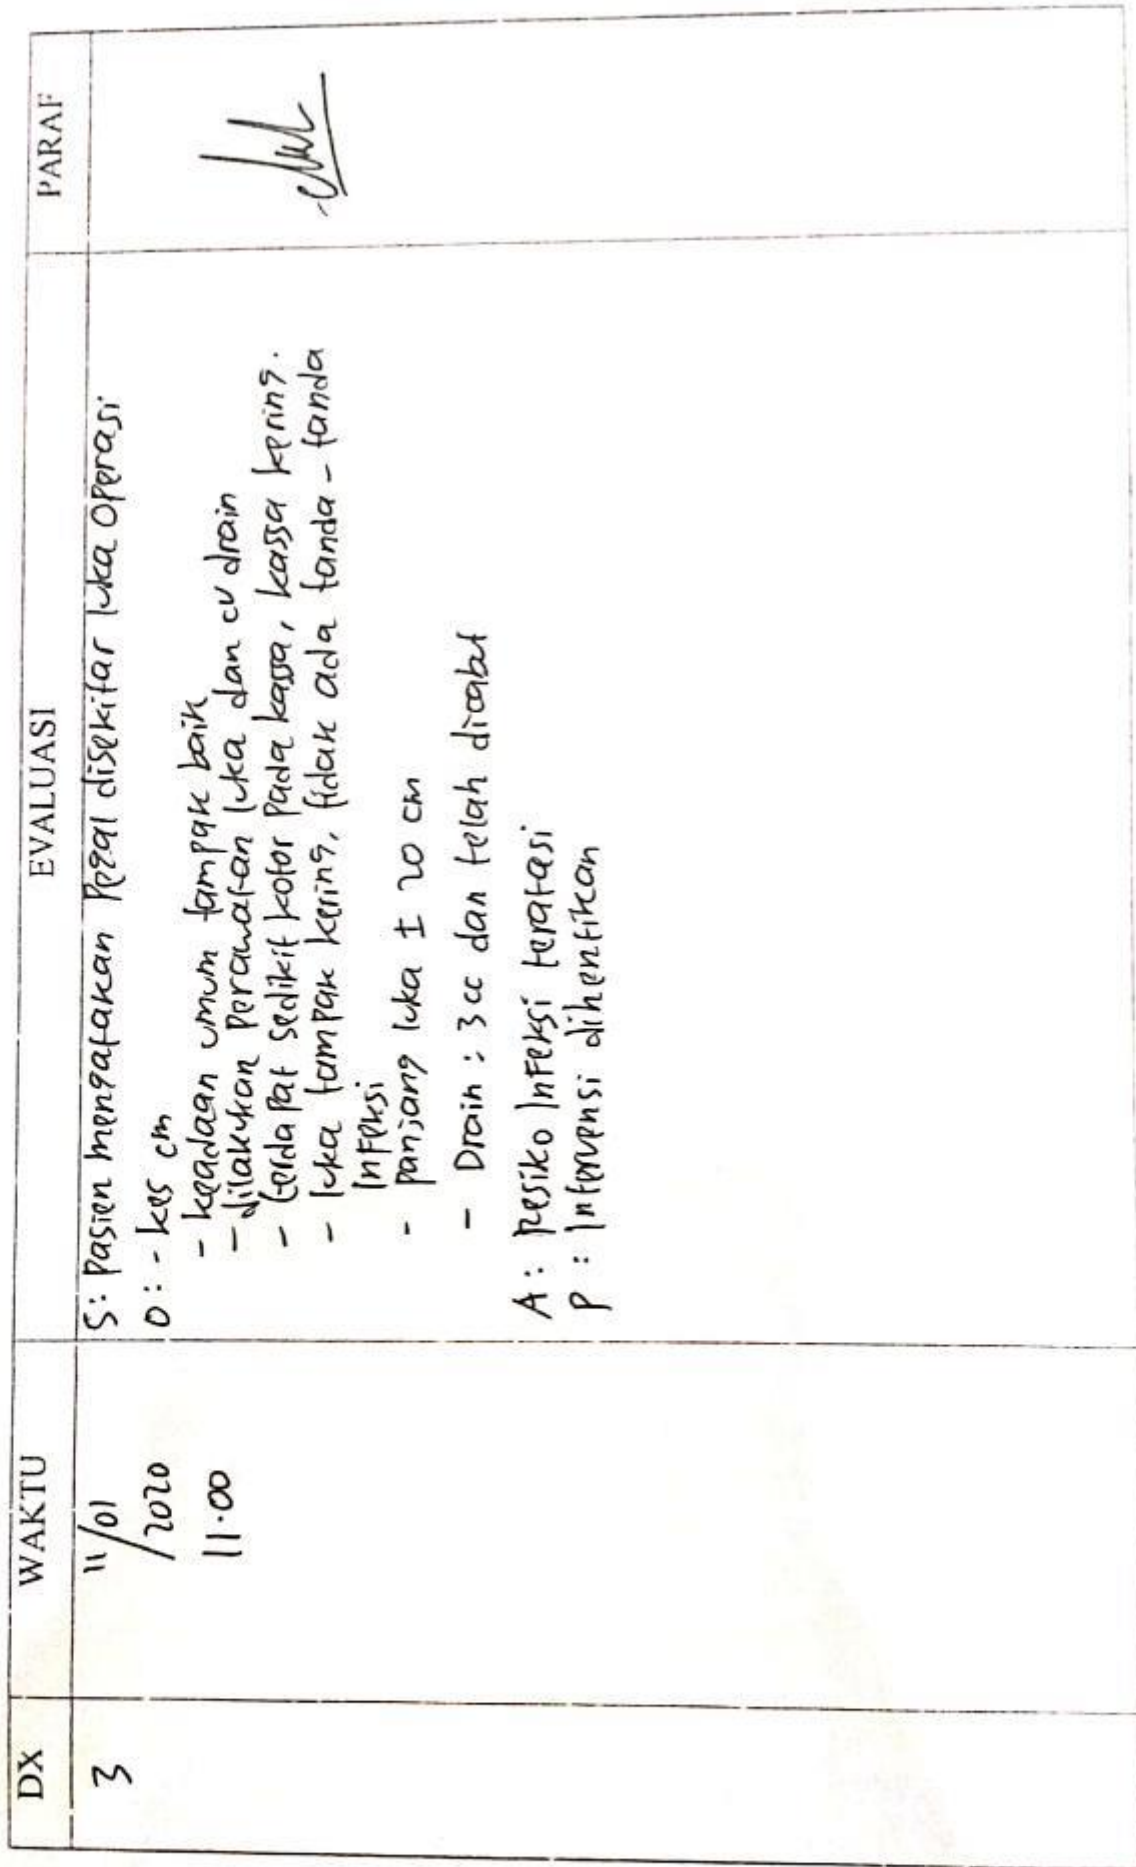 DX WAKTU EVALUASI PARAF
3
11/01
/2020
11.00
S: Pasien mengatakan Pegal disekitar luka Operasi
O: - kes cm
- keadaan umum tampak baik
- dilakukan perawatan luka dan cv drain
- terdapat sedikit kotor pada kassa, kassa kering.
- luka tampak kering, tidak ada tanda - tanda
Infeksi
- panjang luka ± 20 cm
- Drain : 3 cc dan telah dicabut
A : Resiko Infeksi teratasi
P : Intervensi dihentikan